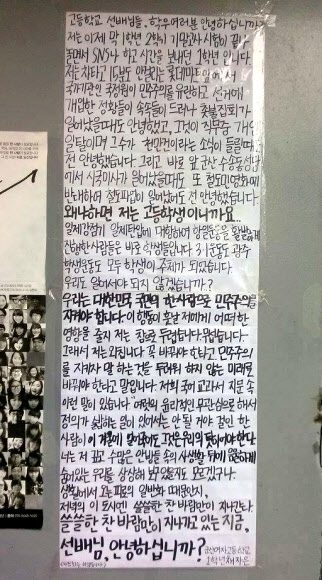 고등학교 선배님들, 학우여러분 안녕하십니까?
저는 이제 막 1학년 2학기 기말고사 시험이 끝나
틈만나면 SNS나 하고 시간을 보내던 1학년 입니다
저는 차타고 15분도 안걸리는 롯데마트 앞에서
국가기관인 국정원이 민주주의를 유린하고 선거에
개입한 정황들이 속속들이 드러나 촛불집회가
일어났을때도 안녕했고, 그것이 직무중 개인
일탈이며 그 수가 천만건이라는 소식이 들릴때도
전 안녕했습니다 그리고 바로 앞 군산 수송동성당
에서 시국미사가 일어났을때도 또 철도민영화에
반대하여 철도파업이 일어났어도 전 안녕했습니다
왜냐하면 저는 고등학생이니까요..
일제강점기 일제탄압에 대항하여 항일운동을 활발하게
진행한 사람들은 바로 학생들입니다 3·1운동도 광주
학생운동도 모두 학생이 주체가 되었습니다
우리도 일어서야 되지 않겠습니까?
우리는 대한민국 국민의 한사람으로 민주주의를
지켜야 합니다 이 행동이 훗날 저에게 어떠한
영향을 줄지 저는 참으로 두렵습니다 무섭습니다
그래서 저는 외칩니다 꼭 바꿔야 한다고, 민주주의
를 지키자 말 하는 것을 두려워 하지 않는 미래로
바꿔야 한다고 말입니다 저희 국어 교과서 지문 속
이런 말이 있습니다 "여럿의 윤리적인 무관심으로 해서
정의가 밟히는 일이 있어서는 안 될 거야 걸인 한
사람이 이 겨울에 얼어죽어도 그것은 우리의 탓이어야 한다
너는 저 깊고 수많은 안방들 속의 사생활 뒤에 음울하게
숨어있는 우리를 상상해 보았을지도 모르겠구나
생활에서 오는 피로의 일반화 때문인지,
저녁의 이 도시엔 쓸쓸한 찬 바람만이 지나간다
쓸쓸한 찬 바람만이 지나가고 있는 지금,
선배님, 안녕하십니까?
군산여자고등학교
1학년 채자은